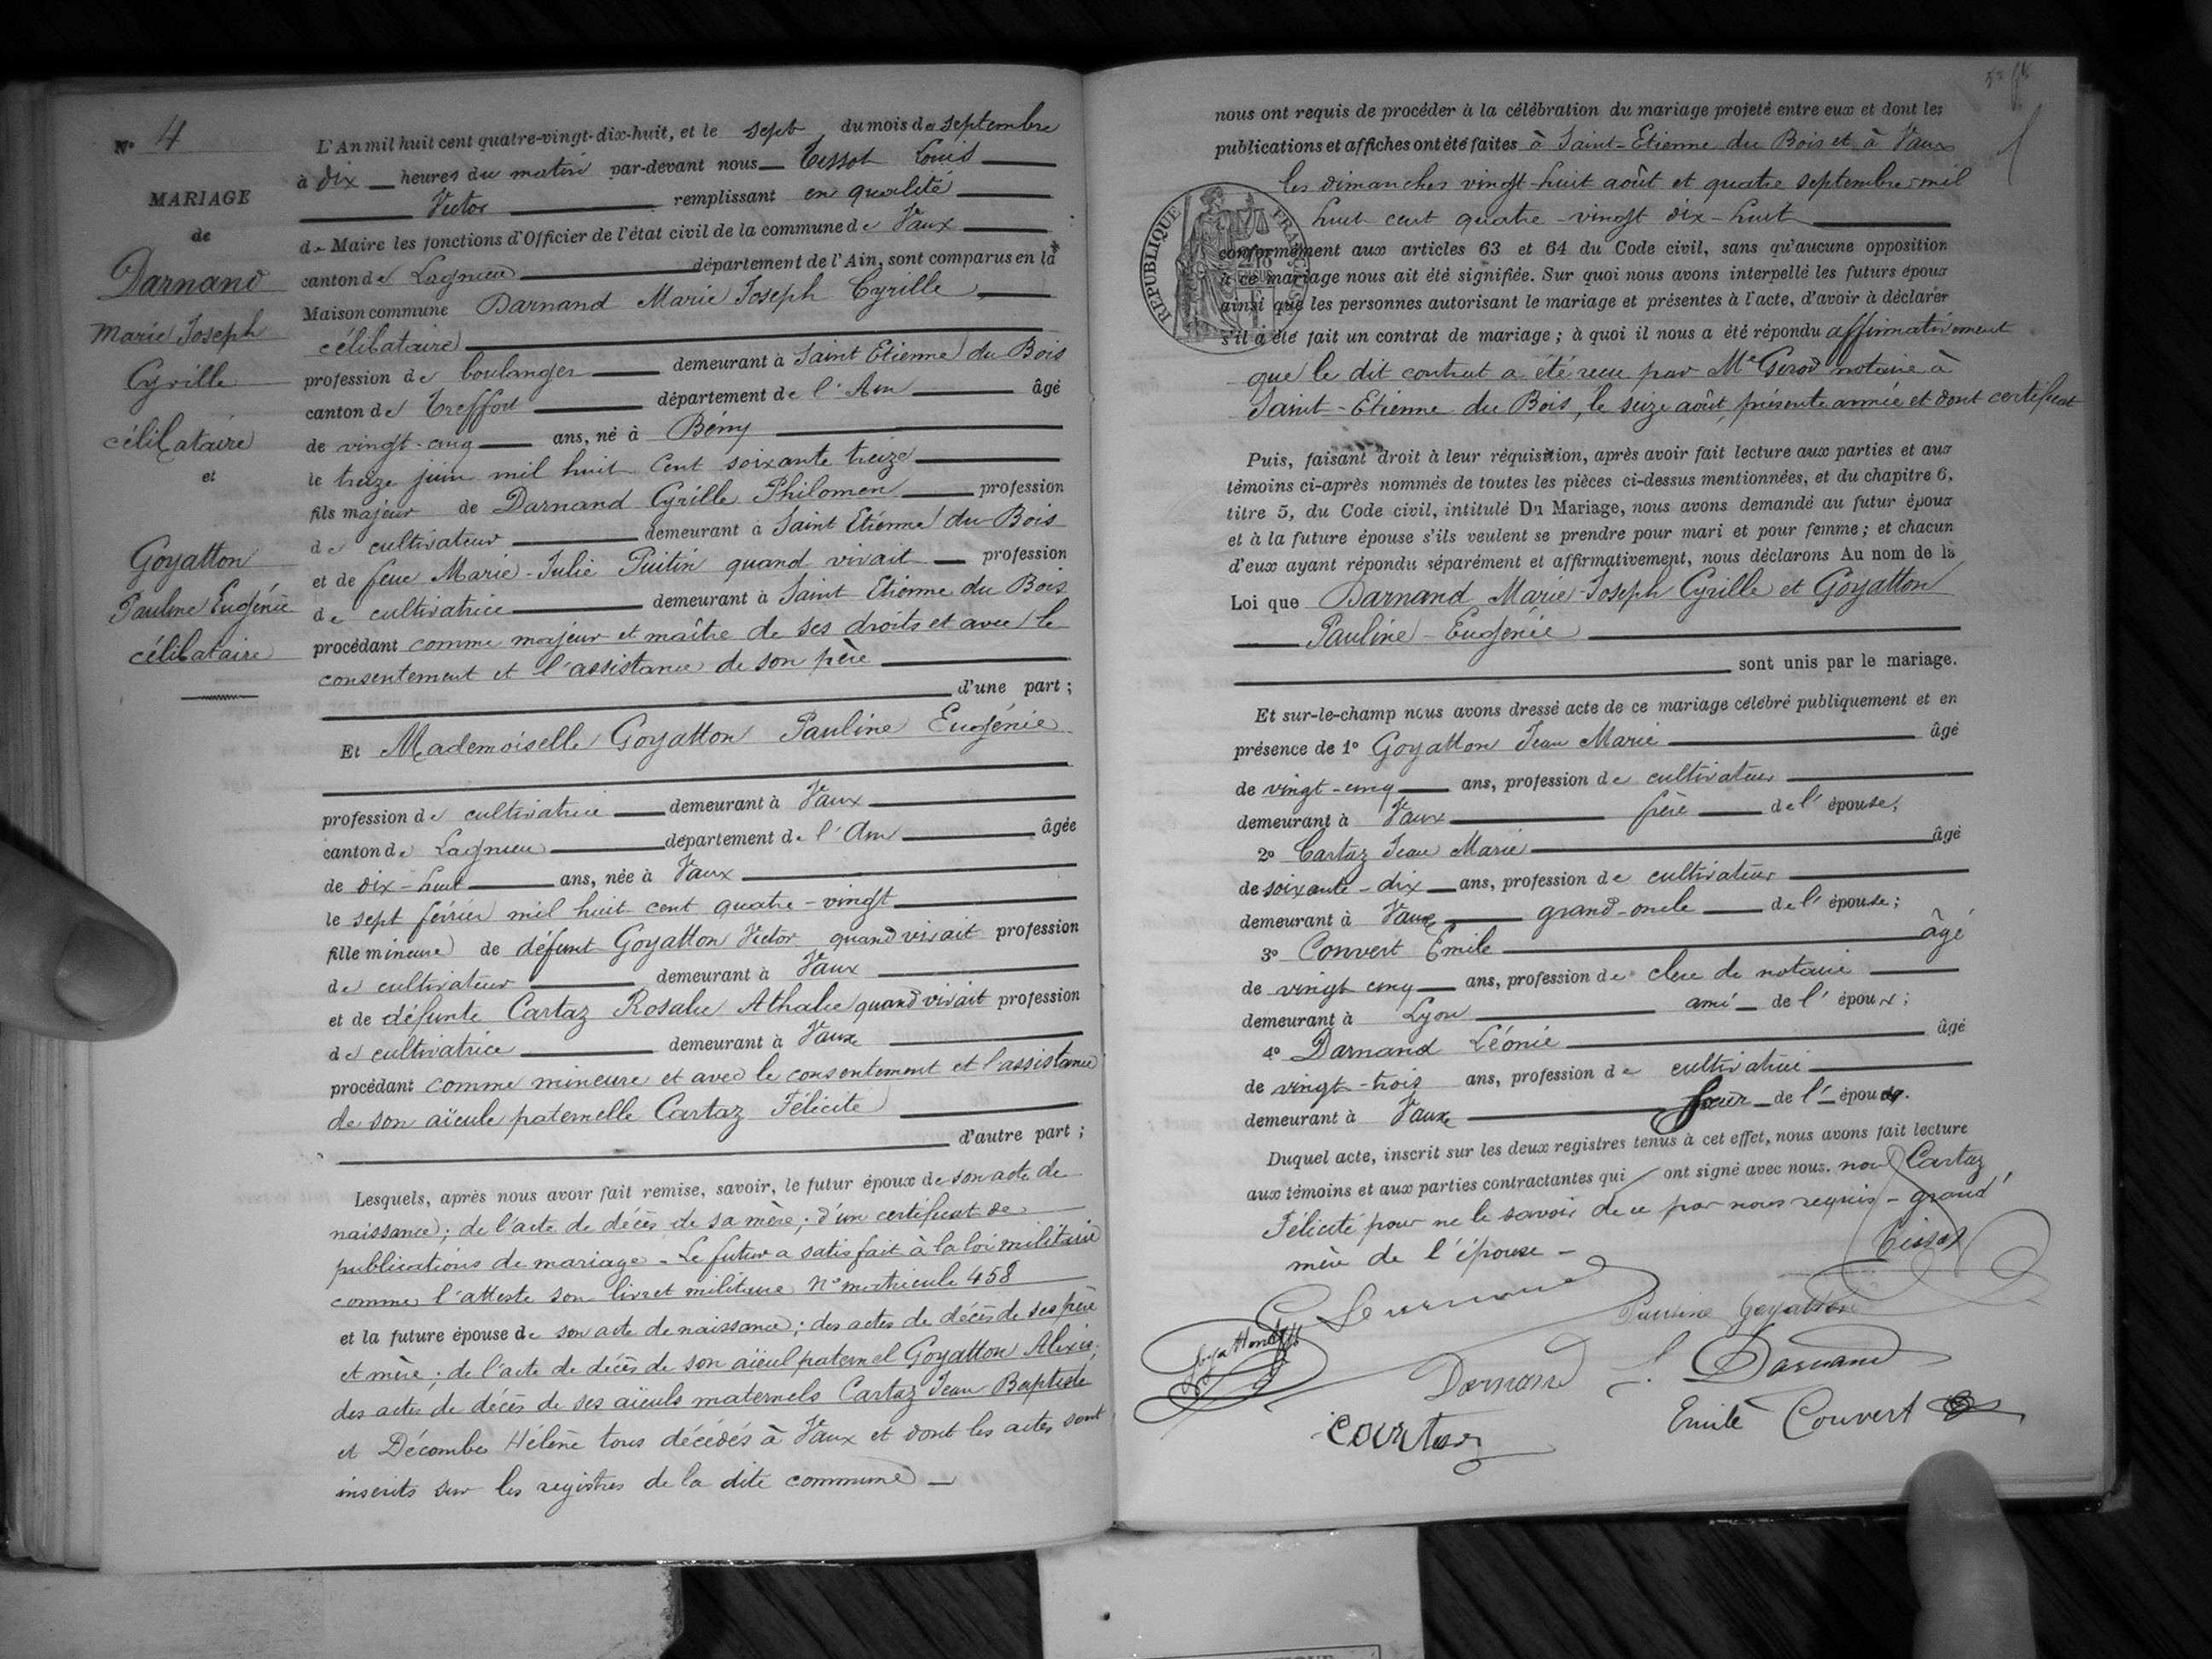 N° 4
MARIAGE
de
Darnand
Marie Joseph
Cyrille
célibataire
et
Goyatton
Pauline Eugénie
célibataire
L'An mil huit cent quatre-vingt-dix-huit, et le sept du mois de septembre
à dix heures du matin par-devant nous Tissot Louis
Victor remplissant en qualité
de Maire les fonctions d'Officier de l'état civil de la commune de Vaux
canton de Lagnieu département de l'Ain, sont comparus en la
Maison commune Darnand Marie Joseph Cyrille
célibataire
profession de boulanger demeurant à Saint Etienne du Bois
canton de Treffort département de l'Ain âgé
de vingt-cinq ans, né à Bény
le treize juin mil huit cent soixante treize
fils majeur de Darnand Cyrille Philomen profession
de cultivateur demeurant à Saint Etienne du Bois
et de feue Marie-Julie Puitin quand vivait profession
de cultivatrice demeurant à Saint Etienne du Bois
procédant comme majeur et maître de ses droits et avec le
consentement et l'assistance de son père
d'une part ;
Et Mademoiselle Goyatton Pauline Eugénie
profession de cultivatrice demeurant à Vaux
canton de Lagnieu département de l'Ain âgée
de dix-huit ans, née à Vaux
le sept février mil huit cent quatre-vingt
fille mineure de défunt Goyatton Victor quand vivait profession
de cultivateur demeurant à Vaux
et de défunte Cartaz Rosalie Athalie quand vivait profession
de cultivatrice demeurant à Vaux
procédant comme mineure et avec le consentement et l'assistance
de son aïeule paternelle Cartaz Félicité
d'autre part ;
Lesquels, après nous avoir fait remise, savoir, le futur époux de son acte de
naissance ; de l'acte de décès de sa mère ; d'un certificat de
publications de mariage - Le futur a satisfait à la loi militaire
comme l'atteste son livret militaire N° matricule 458
et la future épouse de son acte de naissance ; des actes de décès de ses père
et mère ; de l'acte de décès de son aïeul paternel Goyatton Alexis ;
des actes de décès de ses aïeuls maternels Cartaz Jean Baptiste
et Décombe Hélène tous décédés à Vaux et dont les actes sont
inscrits sur les registres de la dite commune -
nous ont requis de procéder à la célébration du mariage projeté entre eux et dont les
publications et affiches ont été faites à Saint-Etienne du Bois et à Vaux
les dimanches vingt-huit août et quatre septembre mil
huit cent quatre-vingt dix-huit
RÉPUBLIQUE FRANÇAISE
conformément aux articles 63 et 64 du Code civil, sans qu'aucune opposition
à ce mariage nous ait été signifiée. Sur quoi nous avons interpellé les futurs époux
ainsi que les personnes autorisant le mariage et présentes à l'acte, d'avoir à déclarer
s'il a été fait un contrat de mariage ; à quoi il nous a été répondu affirmativement
que le dit contrat a été reçu par Me Girod notaire à
Saint-Etienne du Bois, le seize août, présente année et dont certificat
Puis, faisant droit à leur réquisition, après avoir fait lecture aux parties et aux
témoins ci-après nommés de toutes les pièces ci-dessus mentionnées, et du chapitre 6,
titre 5, du Code civil, intitulé Du Mariage, nous avons demandé au futur époux
et à la future épouse s'ils veulent se prendre pour mari et pour femme ; et chacun
d'eux ayant répondu séparément et affirmativement, nous déclarons Au nom de la
Loi que Darnand Marie-Joseph Cyrille et Goyatton
Pauline-Eugénie
sont unis par le mariage.
Et sur-le-champ nous avons dressé acte de ce mariage célébré publiquement et en
présence de 1° Goyatton Jean Marie âgé
de vingt-cinq ans, profession de cultivateur
demeurant à Vaux frère de l'épouse ;
2° Cartaz Jean Marie âgé
de soixante-dix ans, profession de cultivateur
demeurant à Vaux grand-oncle de l'épouse ;
3° Convert Emile âgé
de vingt cinq ans, profession de clerc de notaire
demeurant à Lyon ami de l'époux ;
4° Darnand Léonie âgé
de vingt-trois ans, profession de cultivatrice
demeurant à Vaux sœur de l'époux.
Duquel acte, inscrit sur les deux registres tenus à cet effet, nous avons fait lecture
aux témoins et aux parties contractantes qui ont signé avec nous. non Cartaz
Félicité pour ne le savoir de ce par nous requis - grand'
mère de l'épouse -
Tissot
Pauline Goyatton
Goyatton
Darnand
L. Darnand
Courtaz
Emile Convert